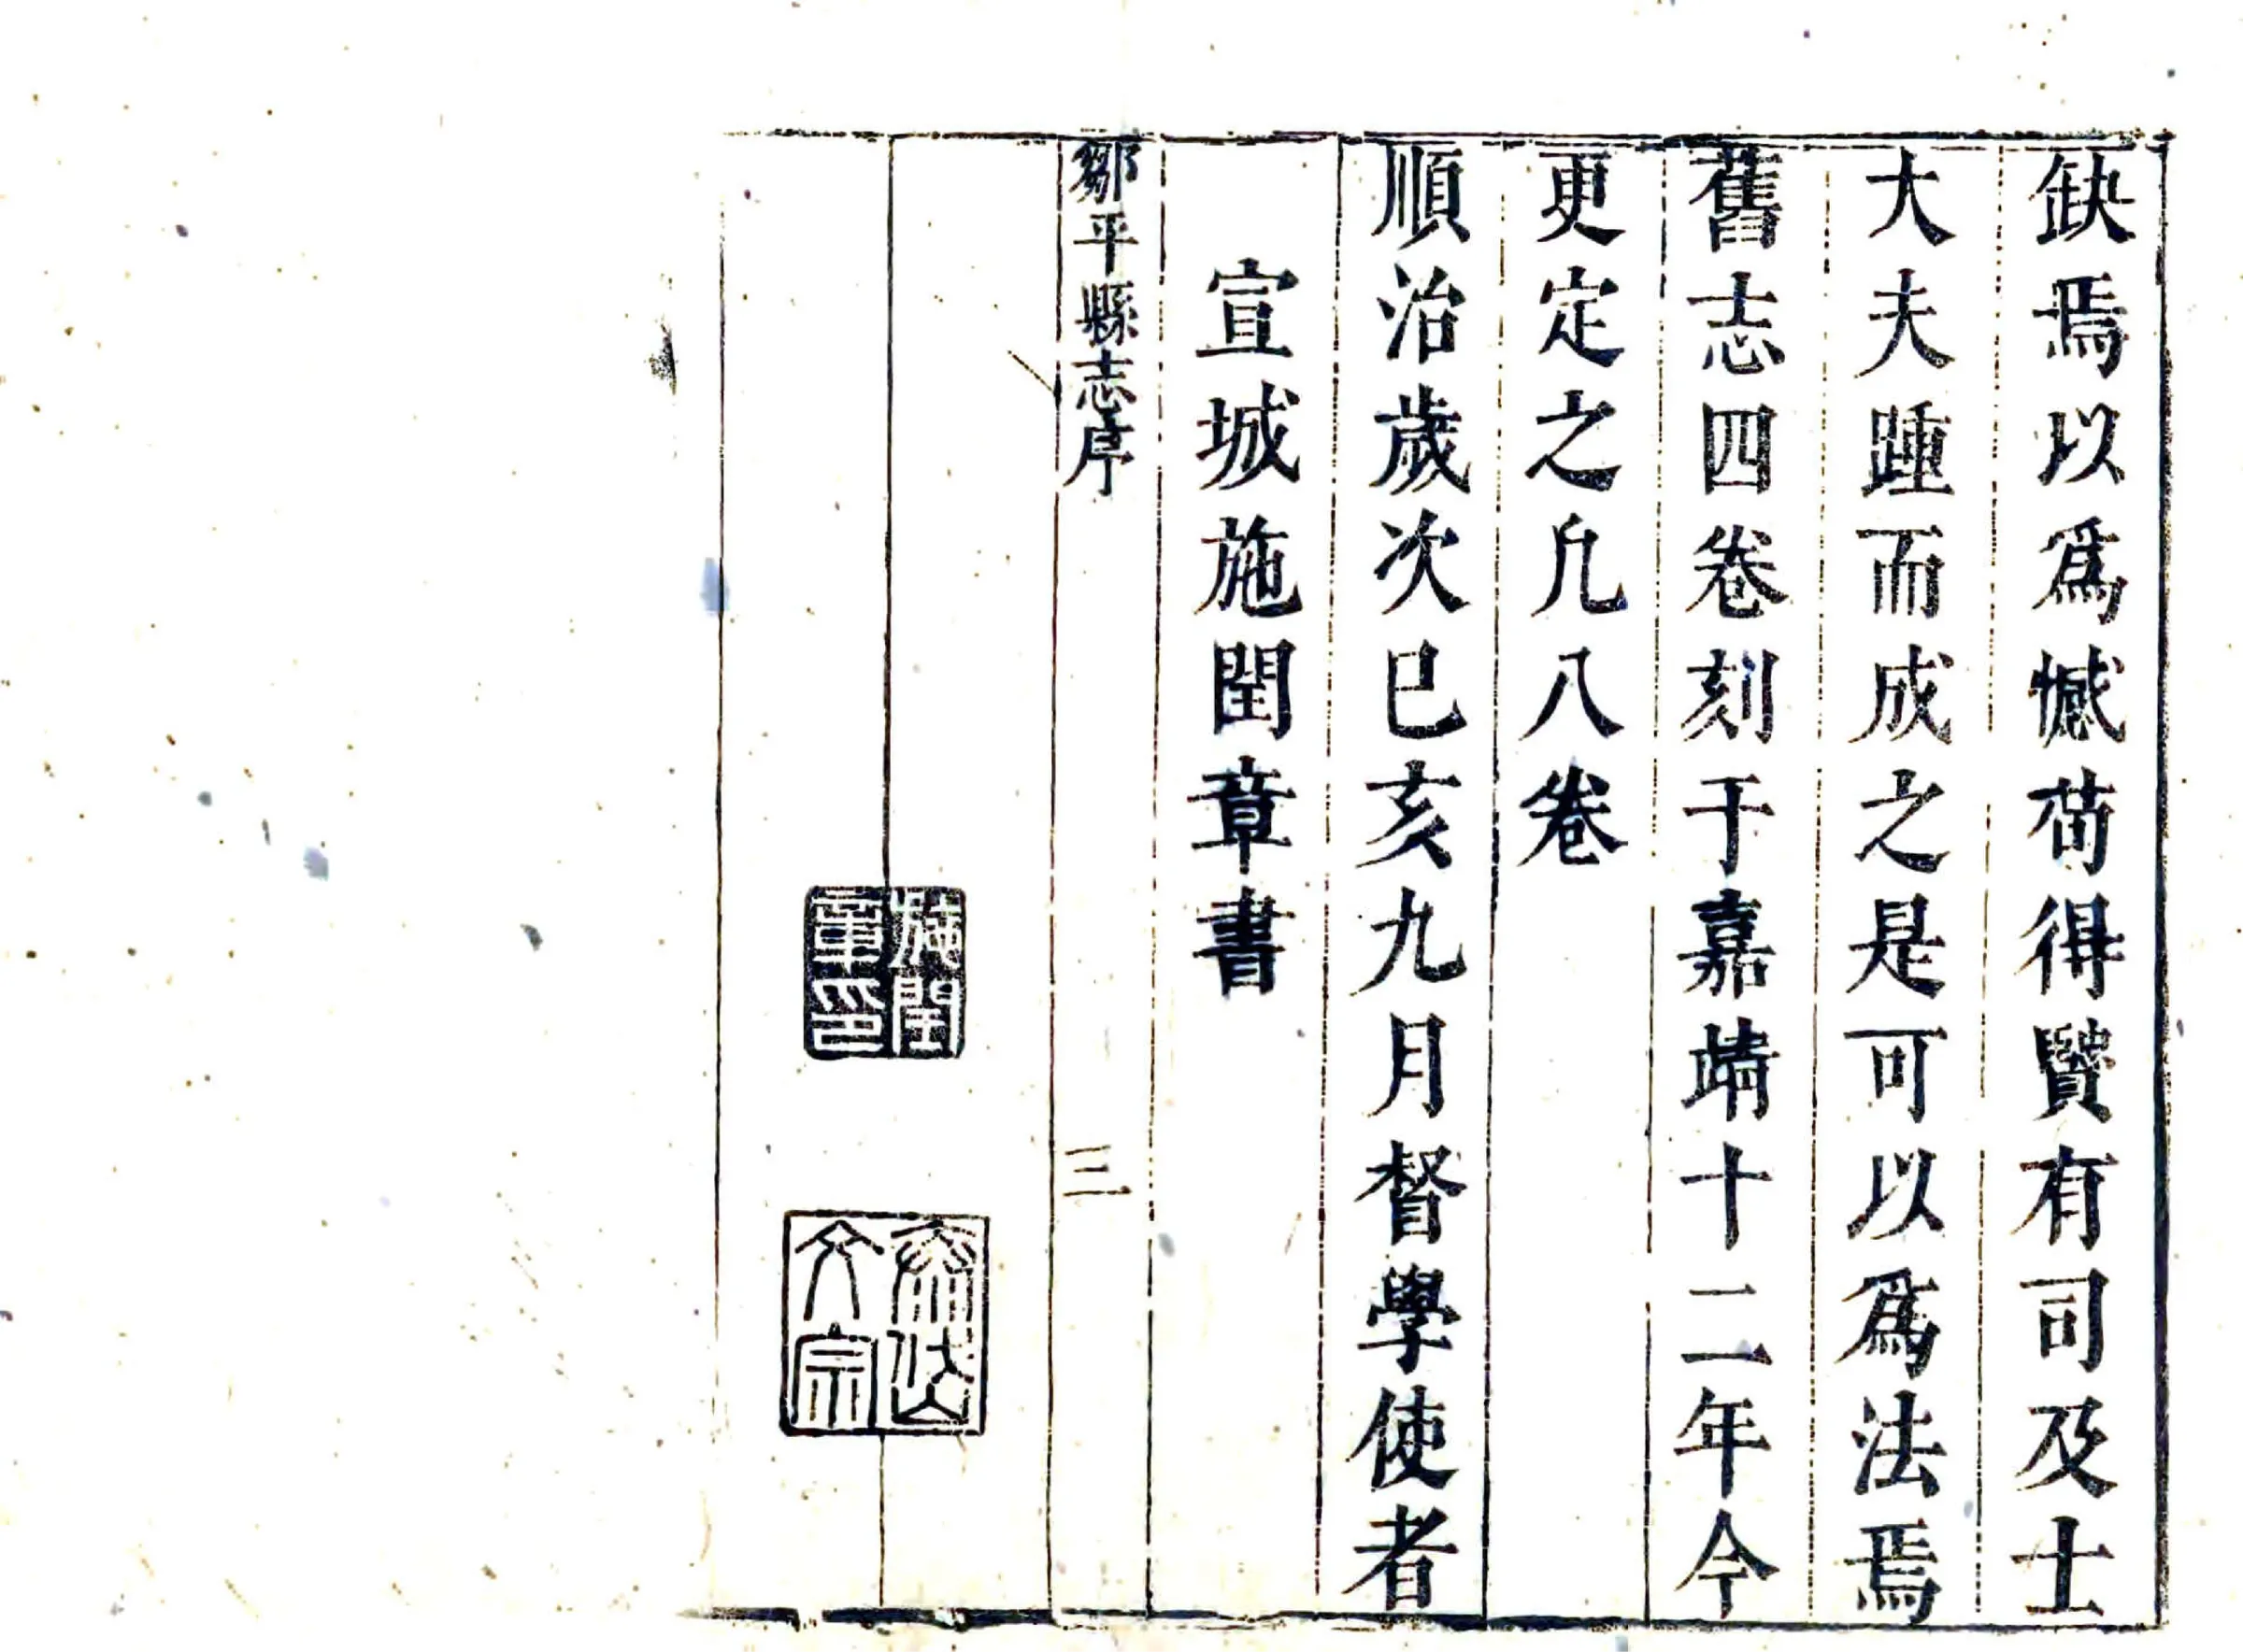 缺焉以爲憾茍得賢有司及士
大夫踵而成之是可以爲法焉
舊志四卷刻于嘉靖十二年今
更定之凢八卷
順治歲次巳亥九月督學使者
宣城施閏章書
鄒平縣志序
三
施閏
章印
齊岱
文宗